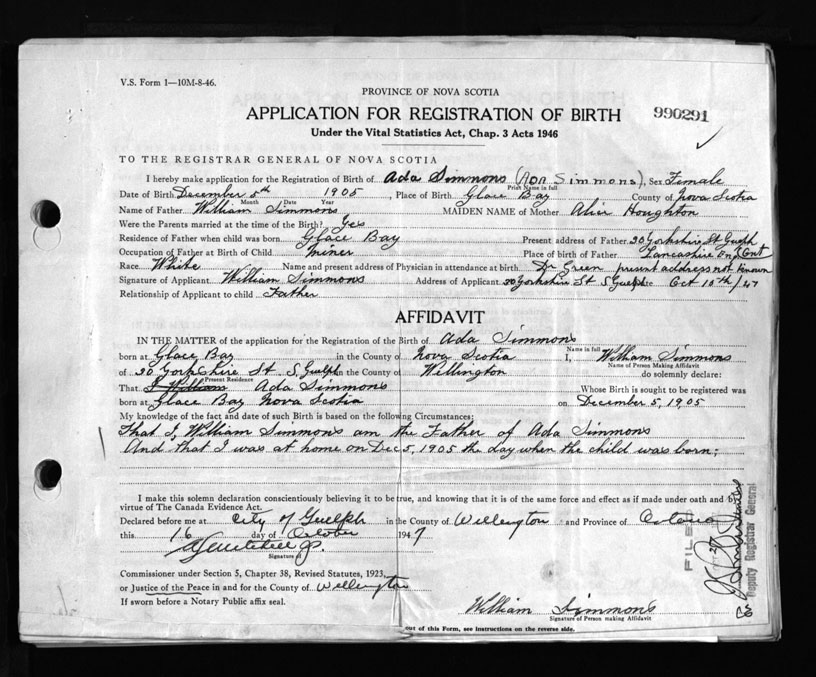 V.S. Form 1—10M-8-46.
PROVINCE OF NOVA SCOTIA
APPLICATION FOR REGISTRATION OF BIRTH
990291
Under the Vital Statistics Act, Chap. 3 Acts 1946
TO THE REGISTRAR GENERAL OF NOVA SCOTIA
I hereby make application for the Registration of Birth of Ada Simmons (non Simmons), Sex Female
Print Name in full
Date of Birth December 5th 1905, Place of Birth Glace Bay County of Nova Scotia
Month Date Year
Name of Father William Simmons MAIDEN NAME of Mother Alice Houghton
Were the Parents married at the time of the Birth? Yes
Residence of Father when child was born Glace Bay Present address of Father 20 Yorkshire St Guelph
Occupation of Father at Birth of Child miner Place of birth of Father Lancashire Eng Ont
Race White Name and present address of Physician in attendance at birth Dr Green present address not known
Signature of Applicant William Simmons Address of Applicant 20 Yorkshire St S Guelph Oct 15th/47
Relationship of Applicant to child Father
AFFIDAVIT
IN THE MATTER of the application for the Registration of the Birth of Ada Simmons
born at Glace Bay in the County of Nova Scotia I, William Simmons
Name in full
Name of Person Making Affidavit
of 20 Yorkshire St. S, Guelph in the County of Wellington do solemnly declare:
Present Residence
That I William Ada Simmons Whose Birth is sought to be registered was
born at Glace Bay Nova Scotia on December 5, 1905
My knowledge of the fact and date of such Birth is based on the following Circumstances:
That I, William Simmons am the Father of Ada Simmons
And that I was at home on Dec 5, 1905 the day when the child was born;
I make this solemn declaration conscientiously believing it to be true, and knowing that it is of the same force and effect as if made under oath and by
virtue of The Canada Evidence Act.
Declared before me at City of Guelph in the County of Wellington and Province of Ontario
this 16 day of October 1947
Signature of
FILED
Deputy Registrar General
Commissioner under Section 5, Chapter 38, Revised Statutes, 1923,
or Justice of the Peace in and for the County of Wellington
If sworn before a Notary Public affix seal.
William Simmons
Signature of Person making Affidavit
out of this Form, see instructions on the reverse side.